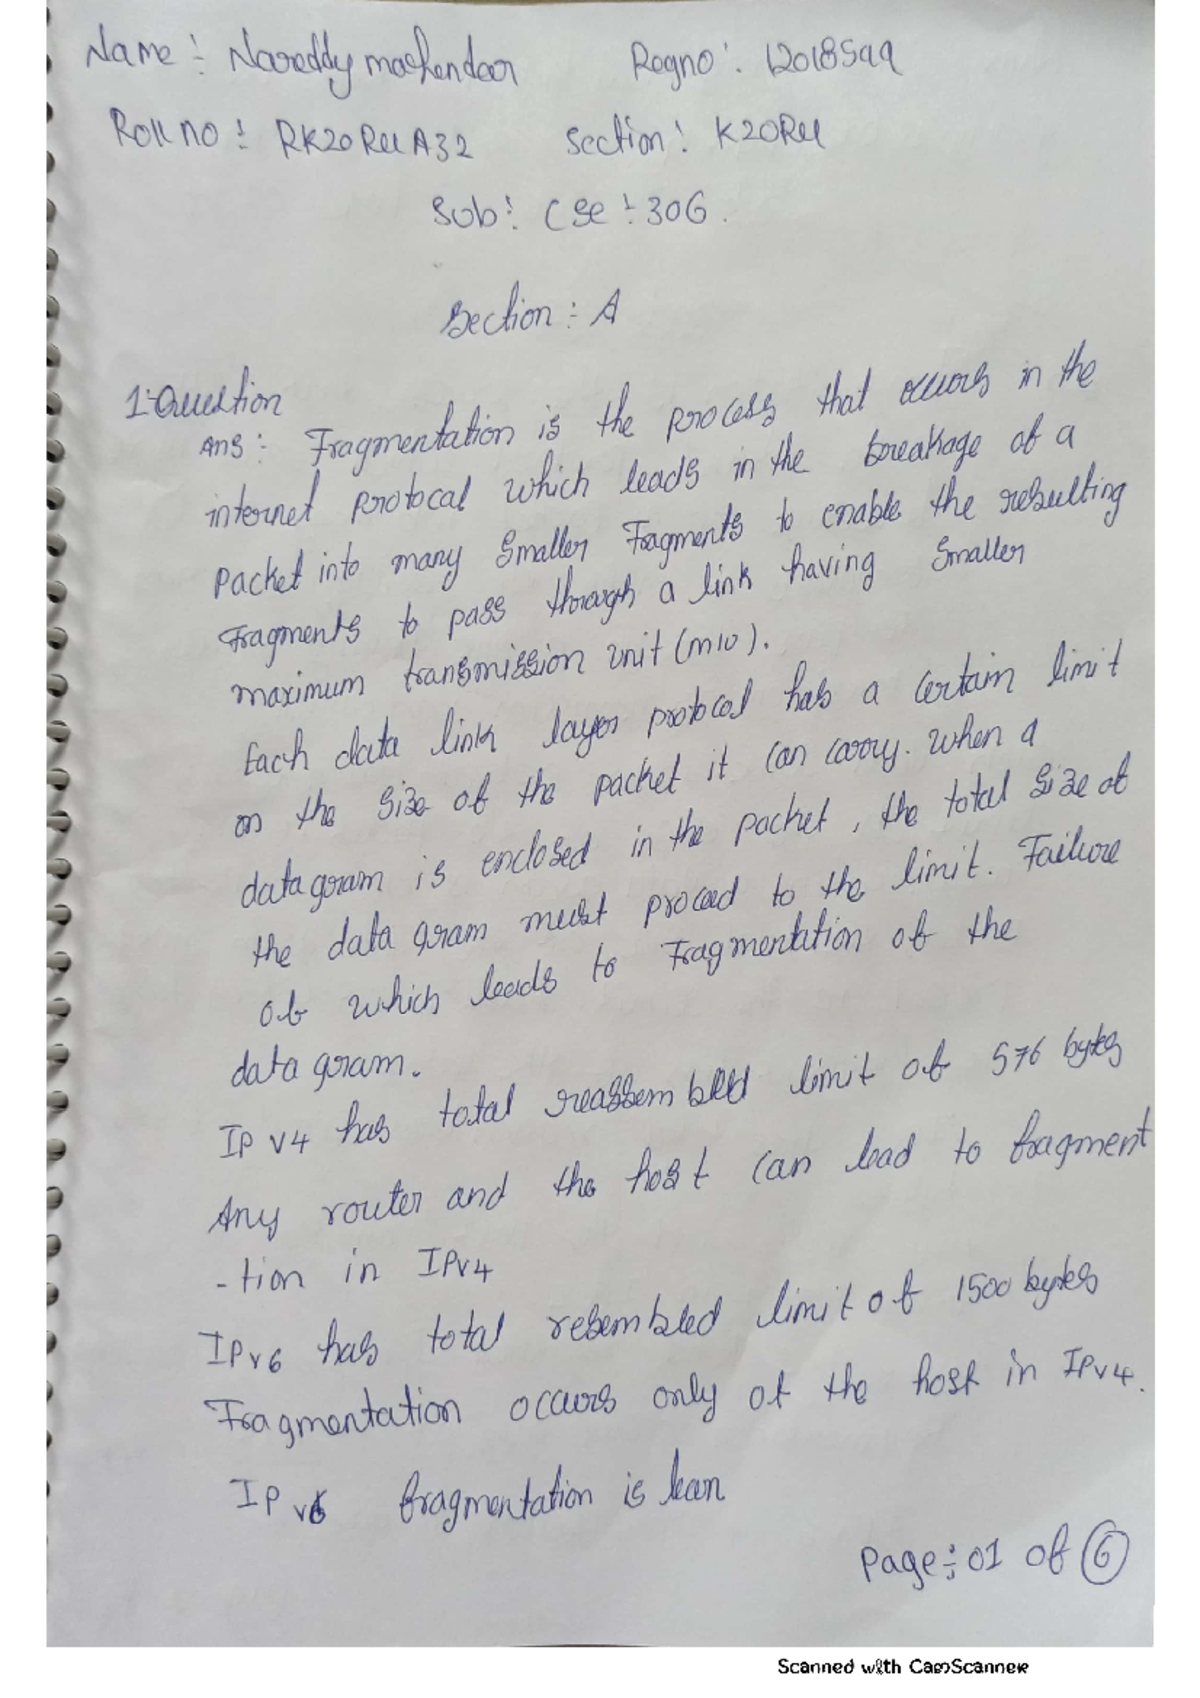 Name :- Nareddy mahendar Regno : 12018599
Roll no : RK20RUA32 Section : K20RU
Sub : CSE :- 306.
Section :- A
1:Question
Ans : Fragmentation is the process that occurs in the
internet protocal which leads in the breakage of a
packet into many smaller Fragments to enable the resulting
Fragments to pass through a link having smaller
maximum transmission unit (MTU).
Each data link layer protocol has a certain limit
on the size of the packet it can carry. When a
datagram is enclosed in the packet, the total size of
the data gram must procced to the limit. Failure
of which leads to Fragmentation of the
data gram.
IP V4 has total reassembled limit of 576 bytes
Any router and the host can lead to fragment
-tion in IPv4
IPv6 has total resembled limit of 1500 bytes
Fragmentation occurs only at the host in IPv4.
IP v6 fragmentation is lean
Page :- 01 of 6
Scanned with CamScanner